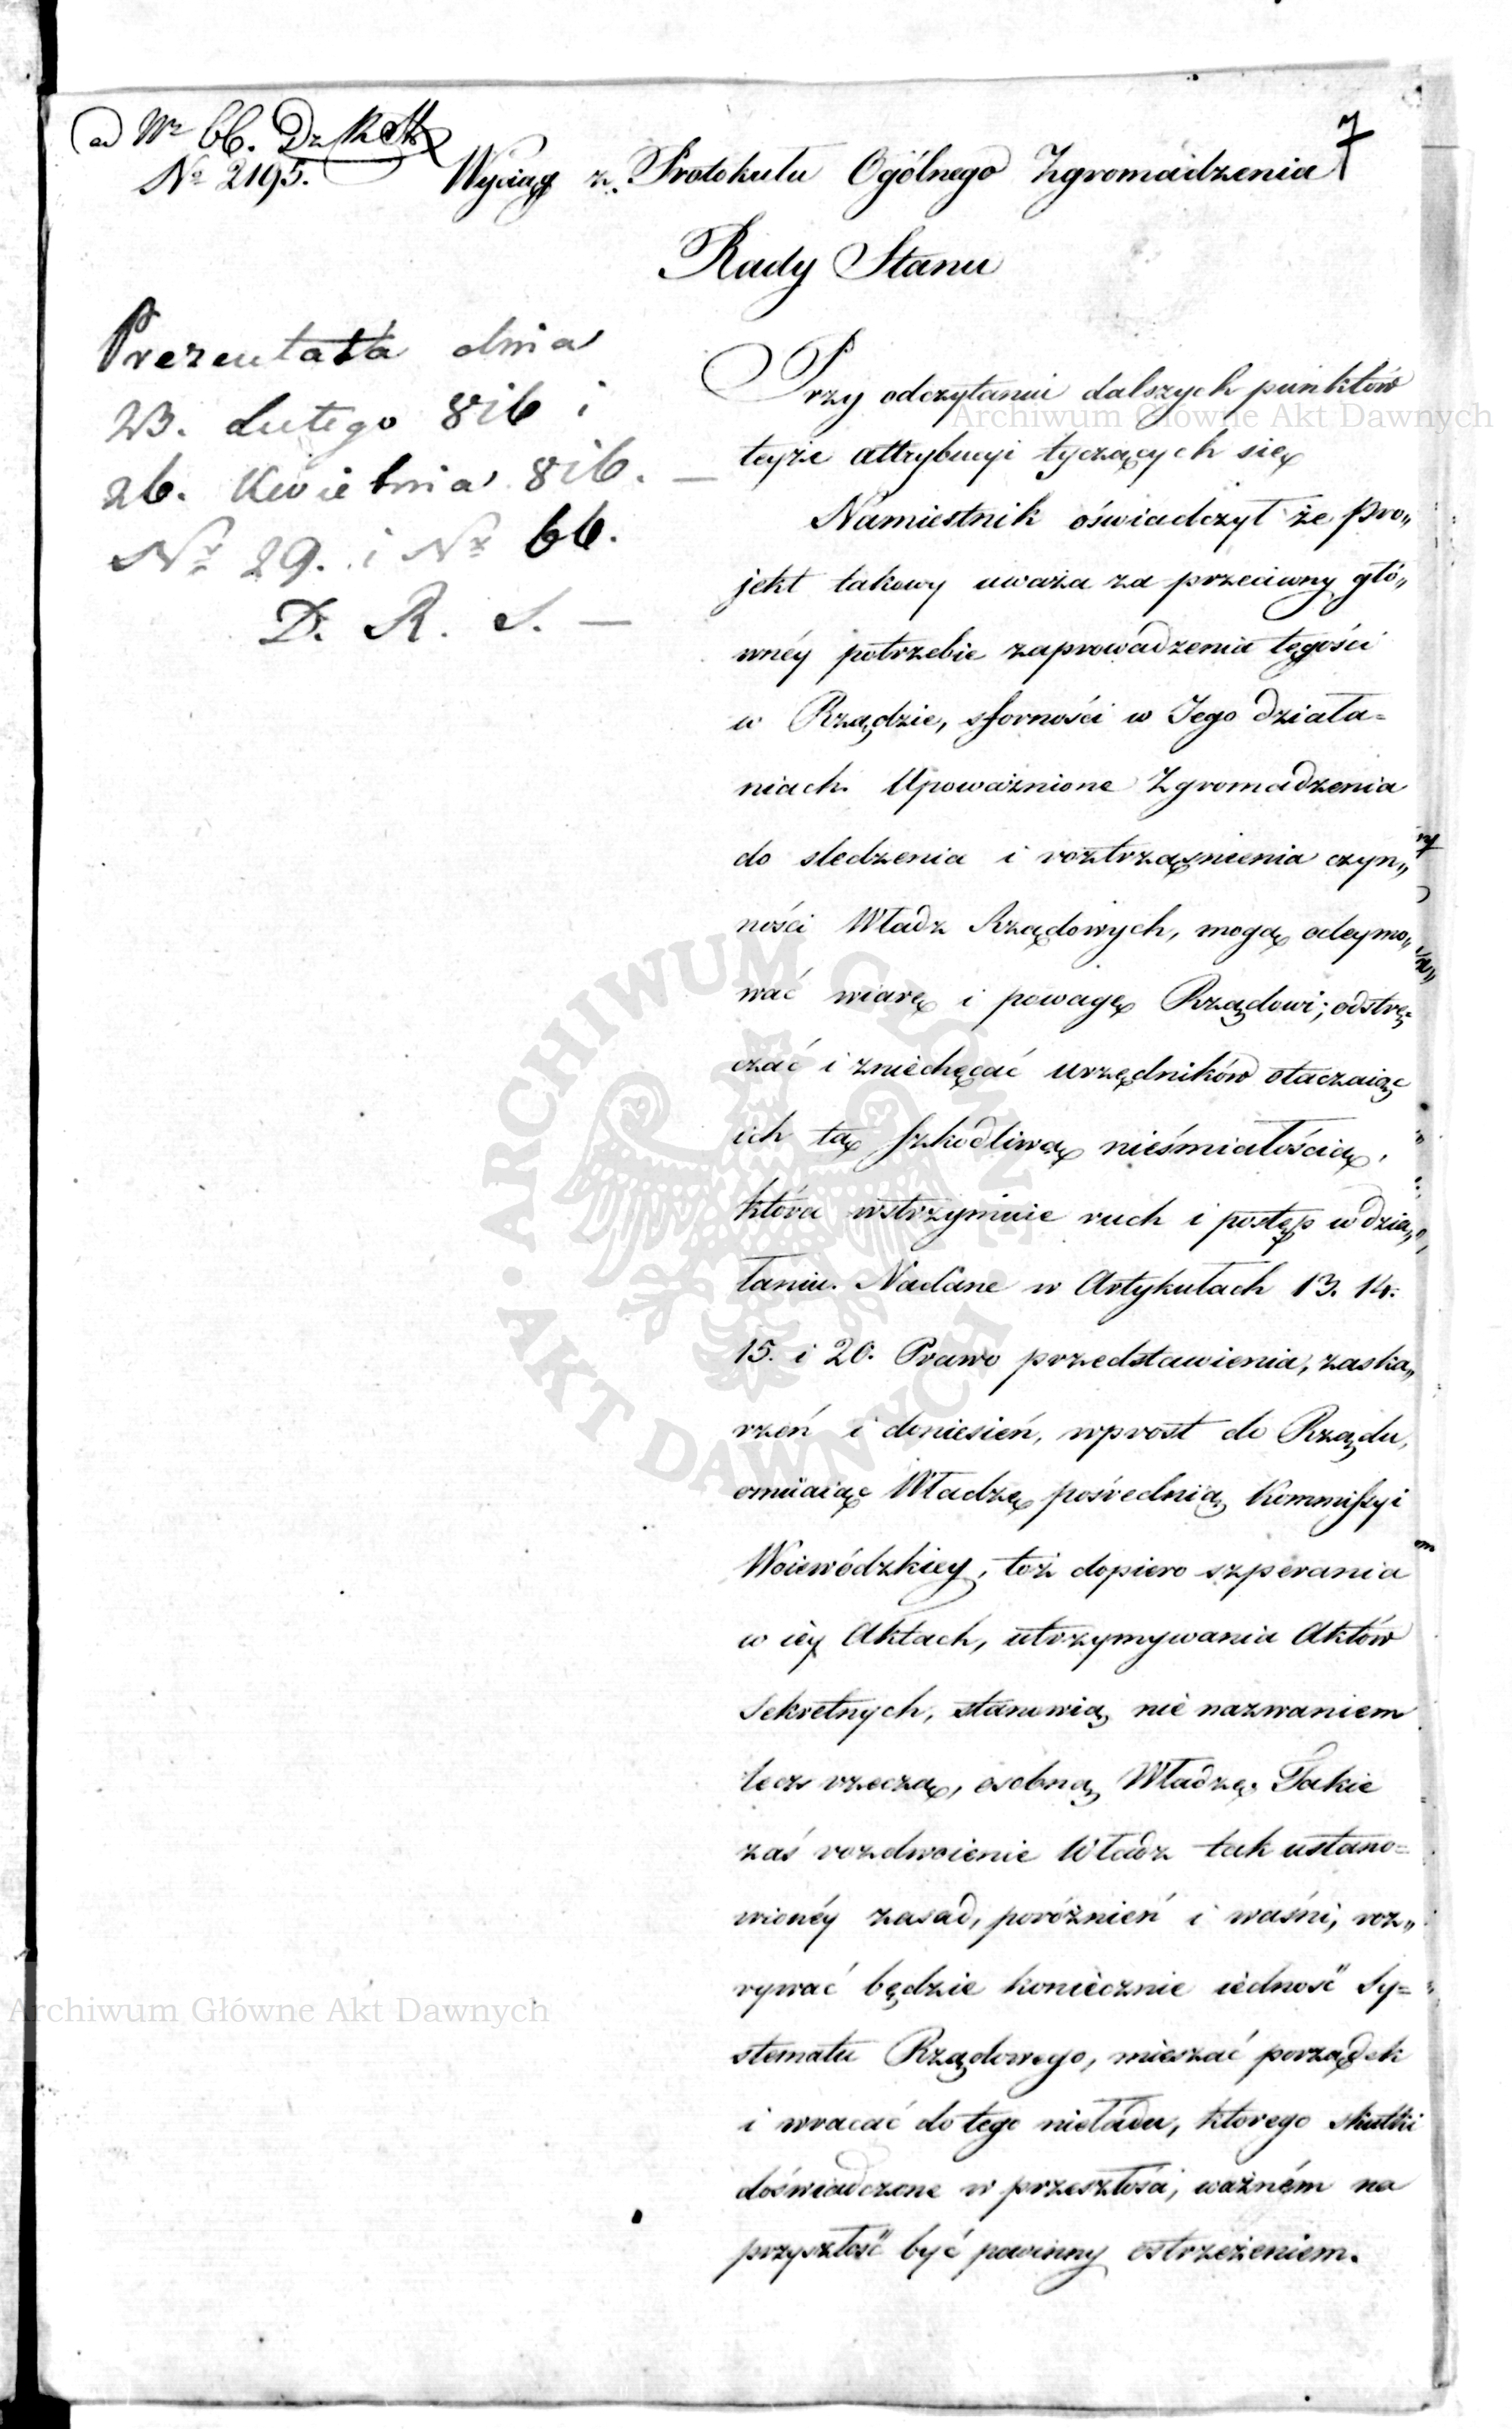 ad Nr 66.
No 2195.
7
Wyciąg z Protokułu Ogólnego Zgromadzenia
Rady Stanu
Prezentata dnia
23. Lutego 816 i
26. Kwietnia 816. —
Nr 29. i Nr 66.
D. R. S. —
Przy odczytaniu dalszych punktów
teyże attrybucyi tyczących się
Namiestnik oświadczył że pro„
jekt takowy uważa za przeciwny głó„
wnéy potrzebie zaprowadzenia tęgości
w Rządzie, sforności w Jego działa=
niach. Upoważnione Zgromadzenia
do sledzenia i roztrząśnienia czyn„
ności Władz Rządowych, mogą odeymo„
wać wiarę i powagę Rządowi; odstrę=
czać i zniechęcać urzędników otaczaiąc
ich tą szkodliwą nieśmiałością,
która wstrzymuie ruch i postęp w dzia„
łaniu. Nadane w Artykułach 13. 14.
15. i 20. Prawo przedstawienia, zaska„
rzeń i doniesień, wprost do Rządu,
omiiaiąc Władzę pośrednią Kommissyi
Woiewódzkiey, toż dopiero szperania
w iéy Aktach, utrzymywania Aktów
Sekretnych, stanowią nie nazwaniem
lecz rzeczą, osobną Władzę. Takie
zaś rozdwoienie Władz tak ustano=
wionéy zasad, poróżnień i waśni, roz„
rywać będzie koniecznie iedność Sy=
stematu Rządowego, mieszać porządek
i wracać do tego nieładu, ktorego skutki
doświadczone w przeszłości, ważném na
przyszłość być powinny ostrzeżeniem.
Archiwum Główne Akt Dawnych
Archiwum Główne Akt Dawnych
ARCHIWUM GŁÓWNE
AKT DAWNYCH